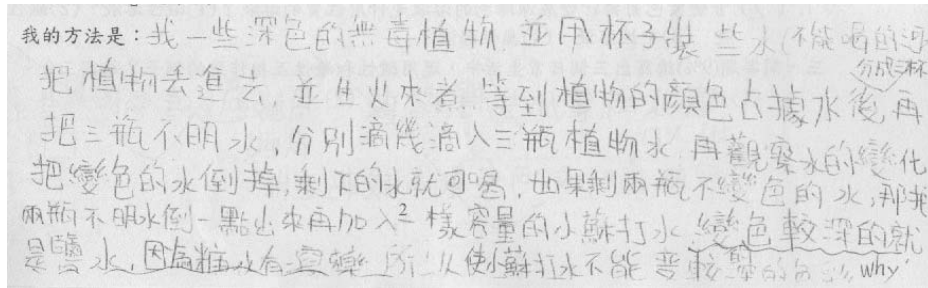 我的方法是：我一些深色的無毒植物，並用杯子裝些水(不能喝的河
分成三杯
把植物丟進去，並生火來煮，等到植物的顏色占據水後，再
把三瓶不明水，分別滴幾滴入三瓶植物水，再觀察水的變化
把變色的水倒掉，剩下的水就可喝，如果剩兩瓶不變色的水，那我
兩瓶不明水倒一點出來再加入2樣容量的小蘇打水，變色較深的就
是鹽水，因為糖水有 所以使小蘇打水不能變較深的 why